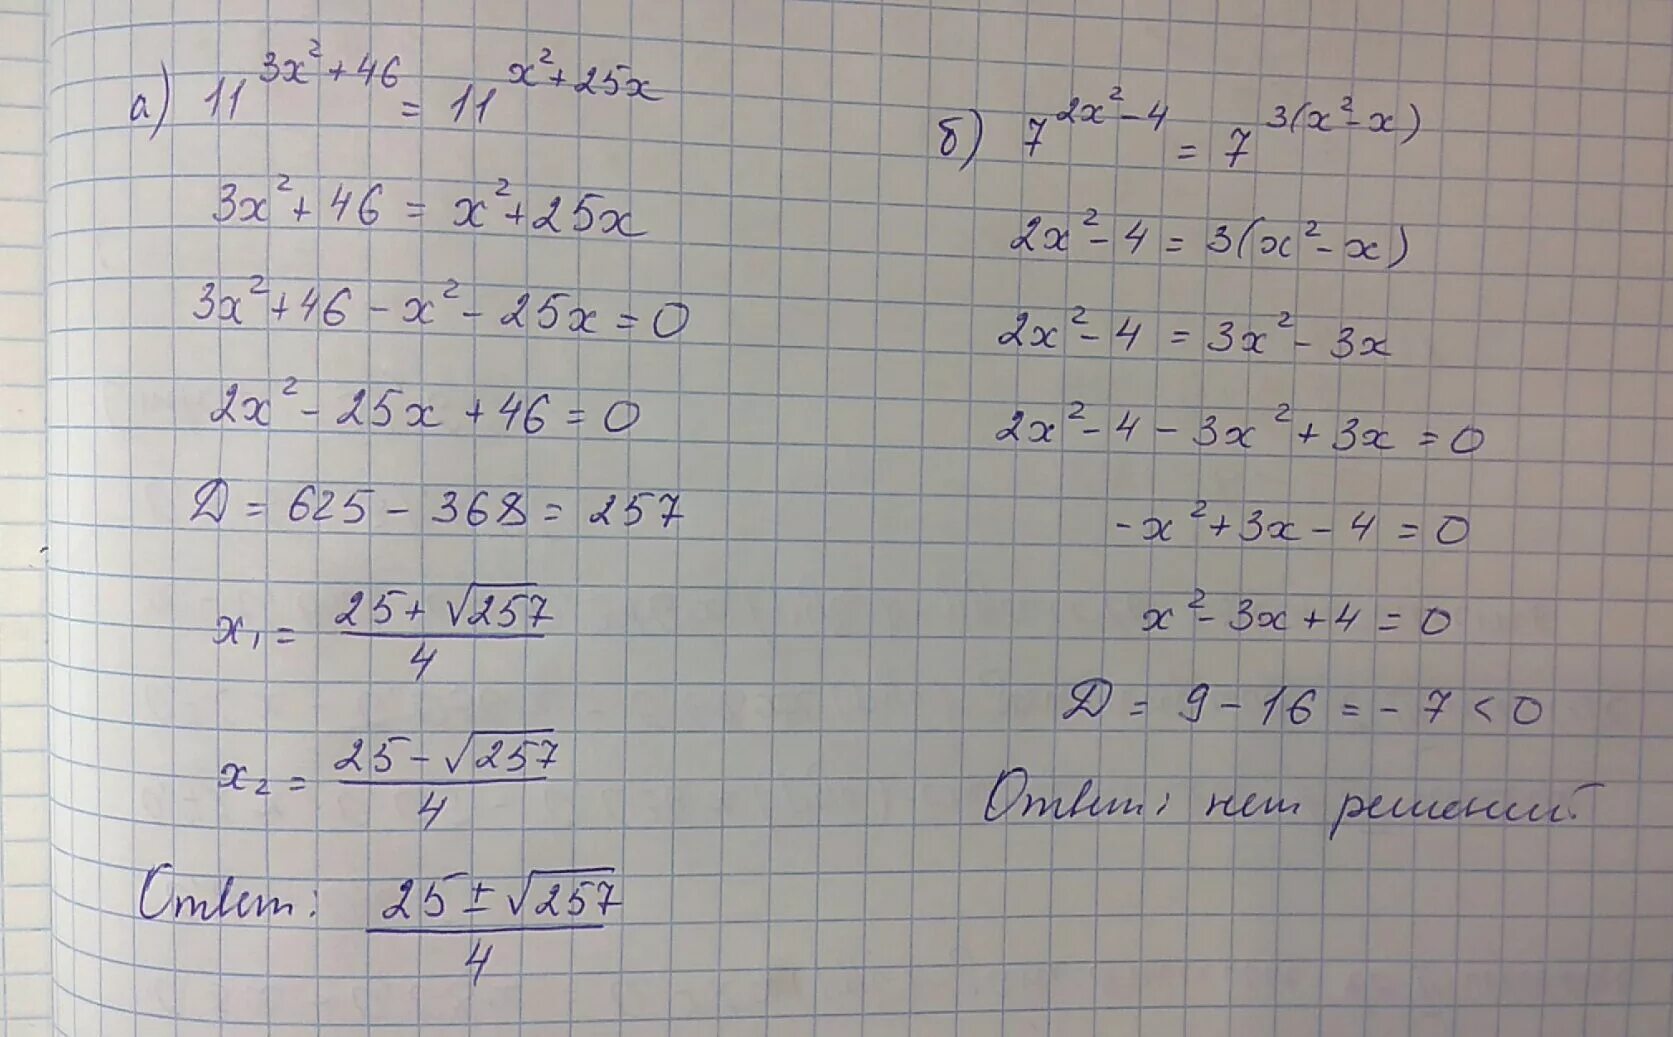 а) 11^(3x²+46) = 11^(x²+25x)
3x²+46 = x²+25x
3x²+46-x²-25x=0
2x²-25x+46=0
D = 625-368=257
x₁ = (25+√257)/4
x₂ = (25-√257)/4
Ответ: (25±√257)/4
б) 7^(2x²-4) = 7^(3(x²-x))
2x²-4=3(x²-x)
2x²-4 = 3x²-3x
2x²-4-3x²+3x=0
-x²+3x-4=0
x²-3x+4=0
D = 9-16=-7<0
Ответ: нет решений.